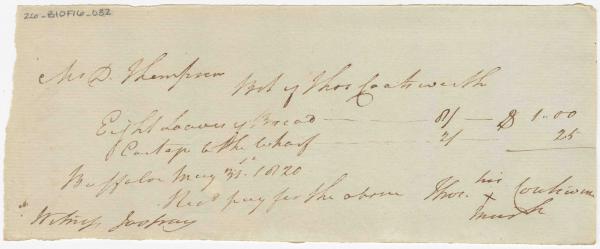 26-B10F16-032
Mr D. Thompson Bot of Thos Coatsworth
Eight Loaves of Bread 8/ $ 1.00
Cartage to the Wharf 2/ 25
Buffaloe May 31st 1820
Recd pay for the above Thos. his Coatswor
X
mark
Witness